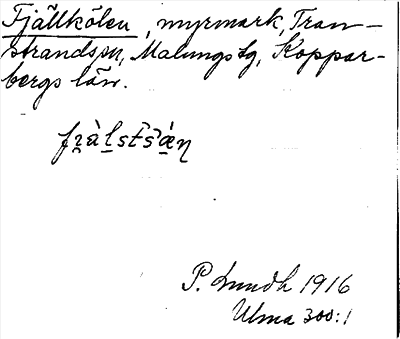 Fjällkölen, myrmark, Tran-
strands sn, Malungs tg, Koppar-
bergs län.
P. Lundh 1916
Ulma 300:1